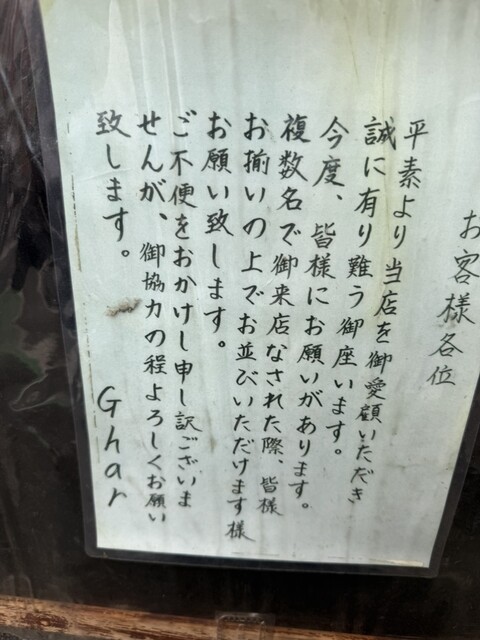 お客様各位
平素より当店を御愛顧いただき
誠に有り難う御座います。
今度、皆様にお願いがあります。
複数名で御来店なされた際、皆様
お揃いの上でお並びいただけます様
お願い致します。
ご不便をおかけし申し訳ございま
せんが、御協力の程よろしくお願い
致します。
Ghar